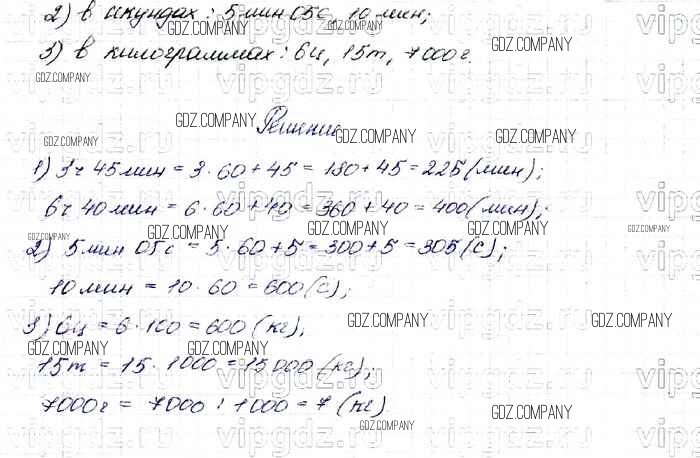 2) в секундах: 5 мин 05с, 10 мин;
3) в килограммах: 6ц, 15т, 7000г.
Решение
1) 3ч 45 мин = 3 · 60 + 45 = 180 + 45 = 225 (мин);
6ч 40 мин = 6 · 60 + 40 = 360 + 40 = 400 (мин);
2) 5 мин 05с = 5 · 60 + 5 = 300 + 5 = 305 (с);
10 мин = 10 · 60 = 600 (с);
3) 6ц = 6 · 100 = 600 (кг);
15т = 15 · 1000 = 15 000 (кг);
7000г = 7000 : 1000 = 7 (кг).
GDZ.COMPANY
vipgdz.ru